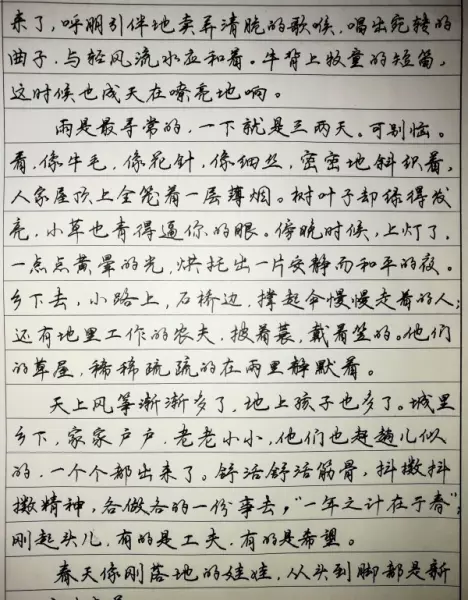 来了，呼朋引伴地卖弄清脆的歌喉，唱出宛转的
曲子，与轻风流水应和着。牛背上牧童的短笛，
这时候也成天在嘹亮地响。
雨是最寻常的，一下就是三两天。可别恼。
看，像牛毛，像花针，像细丝，密密地斜织着，
人家屋顶上全笼着一层薄烟。树叶子却绿得发
亮，小草也青得逼你的眼。傍晚时候，上灯了，
一点点黄晕的光，烘托出一片安静而和平的夜。
乡下去，小路上，石桥边，撑起伞慢慢走着的人；
还有地里工作的农夫，披着蓑，戴着笠的。他们
的草屋，稀稀疏疏的在雨里静默着。
天上风筝渐渐多了，地上孩子也多了。城里
乡下，家家户户，老老小小，他们也赶趟儿似
的，一个个都出来了。舒活舒活筋骨，抖擞抖
擞精神，各做各的一份事去，“一年之计在于春”；
刚起头儿，有的是工夫，有的是希望。
春天像刚落地的娃娃，从头到脚都是新